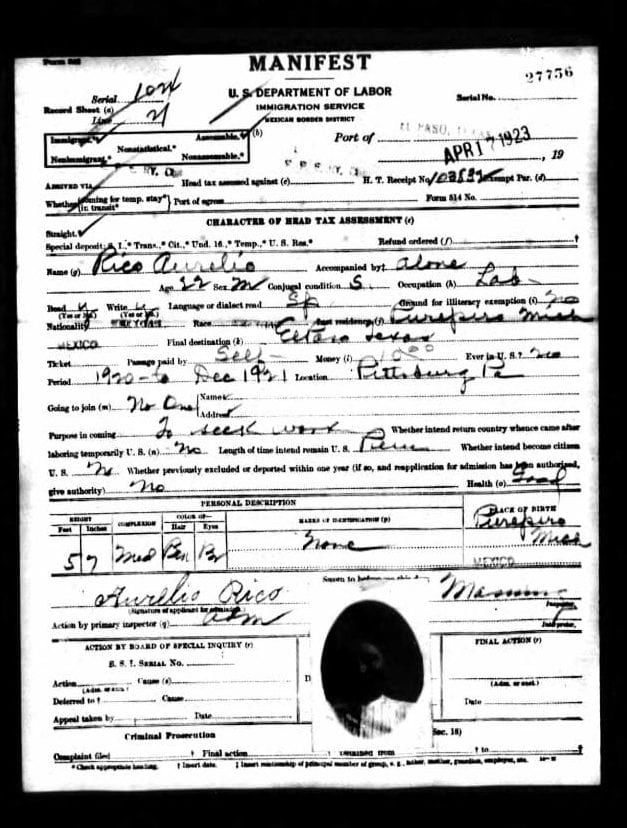 MANIFEST
27756
U. S. DEPARTMENT OF LABOR
IMMIGRATION SERVICE
MEXICAN BORDER DISTRICT
Serial
Record Sheet (a)
Line 21
Serial No.
Immigrant,* Assessable,* (b)
Nonstatistical.*
Nonimmigrant,* Nonassessable,*
Port of EL PASO, TEXAS
APR 17 1923, 19
ARRIVED VIA Head tax assessed against (c) H. T. Receipt No. Exempt Par. (d)
Whether {coming for temp. stay* / in transit*} Port of egress Form 514 No.
CHARACTER OF HEAD TAX ASSESSMENT (e)
Straight.
Special deposit: S. I.,* Trans.,* Cit.,* Und. 16,* Temp.,* U. S. Res.* Refund ordered (f) †
Name (g) Rico Aurelio Accompanied by‡ alone
Age 22 Sex M Conjugal condition S. Occupation (h) Lab
Read y Write y Language or dialect read Sp Ground for illiteracy exemption (i) no
(Yes or No) (Yes or No)
Nationality MEXICAN Race Last residence (j) Purepero Mich
MEXICO Final destination (k) El Paso Texas
Ticket Passage paid by Self Money (l) Ever in U. S.? yes
Period 1920 to Dec 1921 Location Pittsburg Pa
Going to join (m) No One {Name
Address
Purpose in coming To seek work Whether intend return country whence came after
laboring temporarily U. S. (n) No Length of time intend remain U. S. Perm Whether intend become citizen
U. S. No Whether previously excluded or deported within one year (if so, and reapplication for admission has been authorized,
give authority) No Health (o) Good
PERSONAL DESCRIPTION
HEIGHT COMPLEXION COLOR OF— MARKS OF IDENTIFICATION (p) PLACE OF BIRTH
Feet Inches Hair Eyes
5 7 Med Br None Purepero Mich
MEXICO
Aurelio Rico Sworn to before me this day
(Signature of applicant for admission)
Inspector.
Action by primary inspector (q) adm
ACTION BY BOARD OF SPECIAL INQUIRY (r)
FINAL ACTION (r)
B. S. I. SERIAL No.
Action Cause (s)
(Adm. or excl.)
(Adm. or excl.)
Deferred to † Cause
Date
Appeal taken by Date
Criminal Prosecution
Sec. 18)
Complaint filed † Final action † to †
* Check appropriate heading. † Insert date. ‡ Insert relationship of principal member of group, e. g., father, mother, guardian, employer, etc.